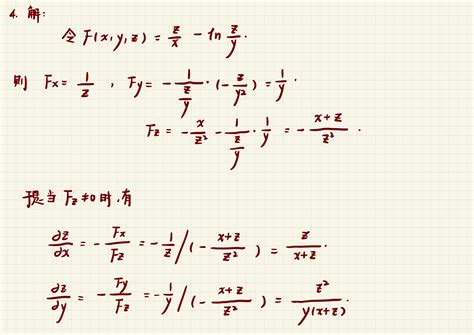 4. 解:
令 F(x,y,z) = z/x - ln z/y.
則 Fx = 1/z , Fy = - 1/(z/y) · (- z/y²) = 1/y.
Fz = - x/z² - 1/(z/y) · 1/y = - (x+z)/z² .
当 Fz ≠ 0 时,有
∂z/∂x = - Fx/Fz = - 1/z / (- (x+z)/z² ) = z/(x+z) .
∂z/∂y = - Fy/Fz = - 1/y / (- (x+z)/z² ) = z²/(y(x+z)) .